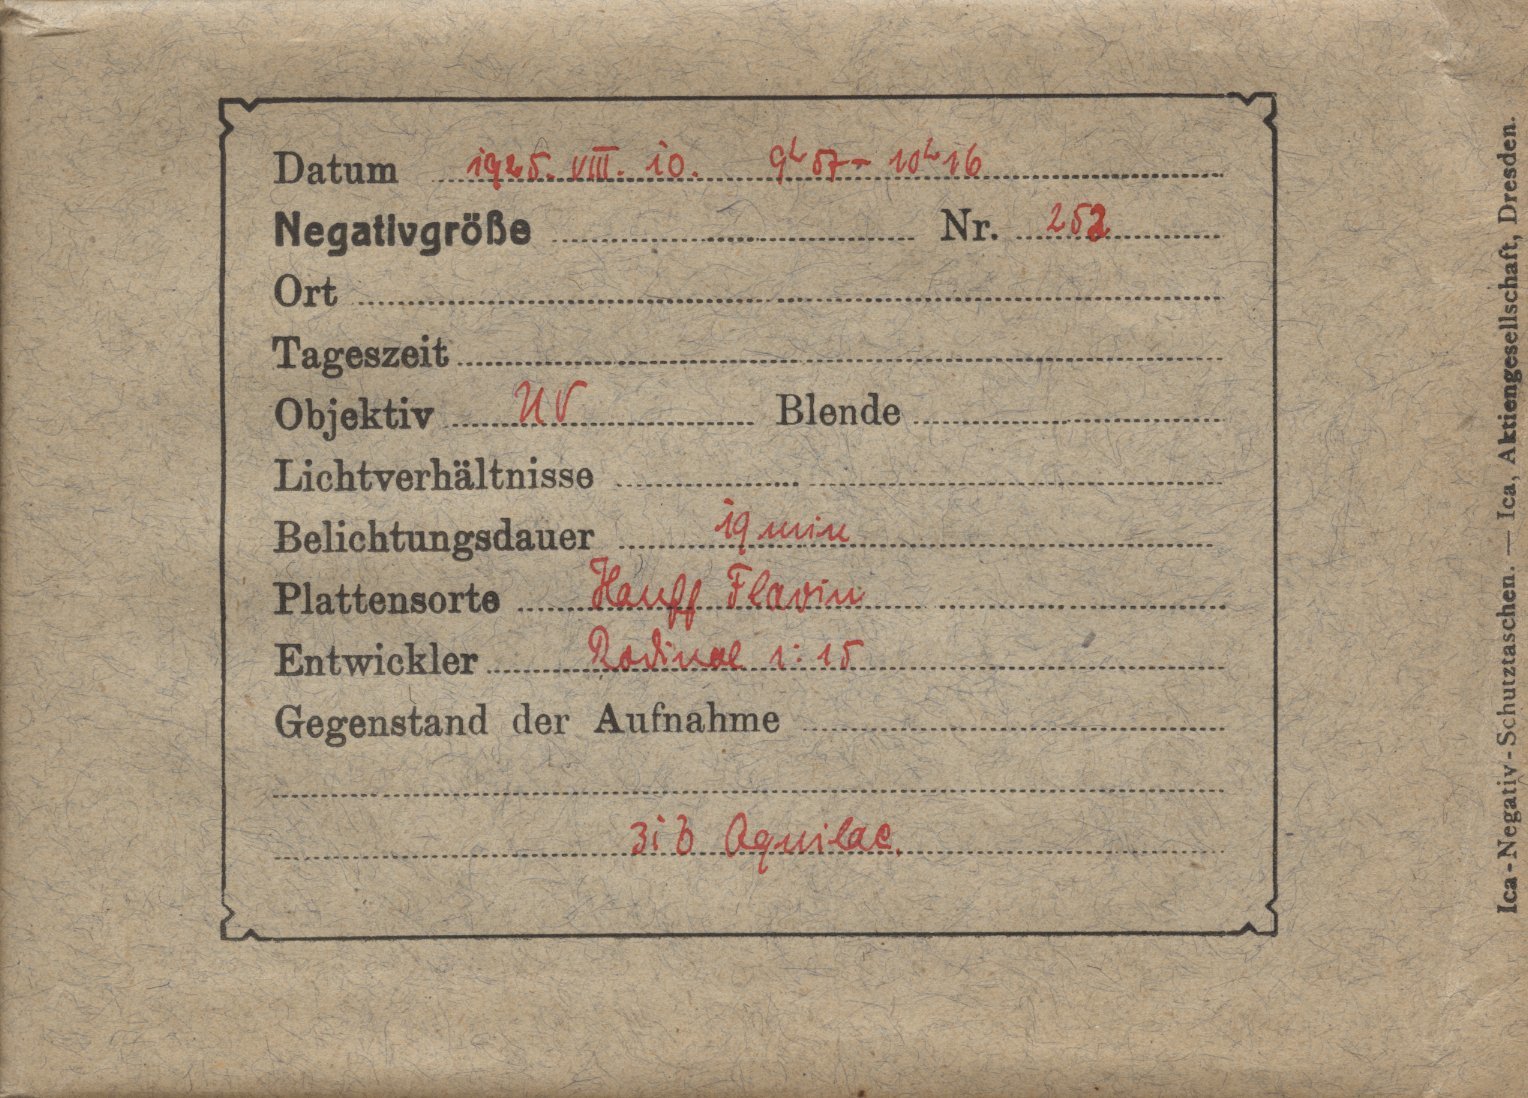 Datum 1925. VIII. 10. 9h 57 - 10h 16
Negativgröße Nr. 252
Ort
Tageszeit
Objektiv UV Blende
Lichtverhältnisse
Belichtungsdauer 19 min
Plattensorte Hauff Flavin
Entwickler Rodinal 1:15
Gegenstand der Aufnahme
31 b Aquilae.
Ica-Negativ-Schutztaschen. — Ica, Aktiengesellschaft, Dresden.